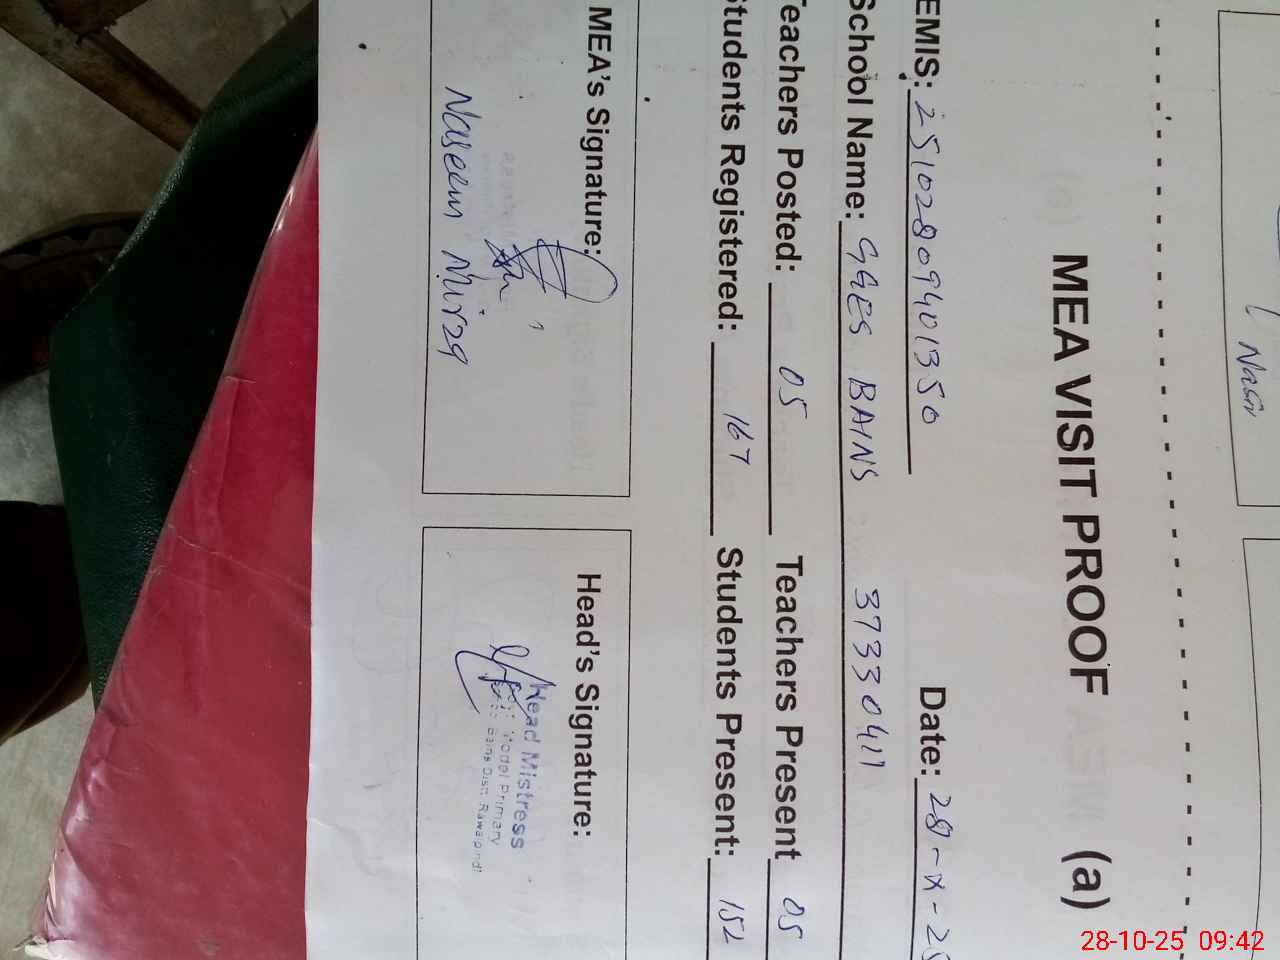 Nasn
MEA VISIT PROOF (a)
EMIS: 25102809401350 Date: 28-X-25
School Name: GGES BAINS 37330411
Teachers Posted: 05 Teachers Present 05
Students Registered: 167 Students Present: 152
MEA's Signature:
Naseem Mirza
Head's Signature:
Head Mistress
Model Primary
Bains Distt Rawalpindi
28-10-25 09:42